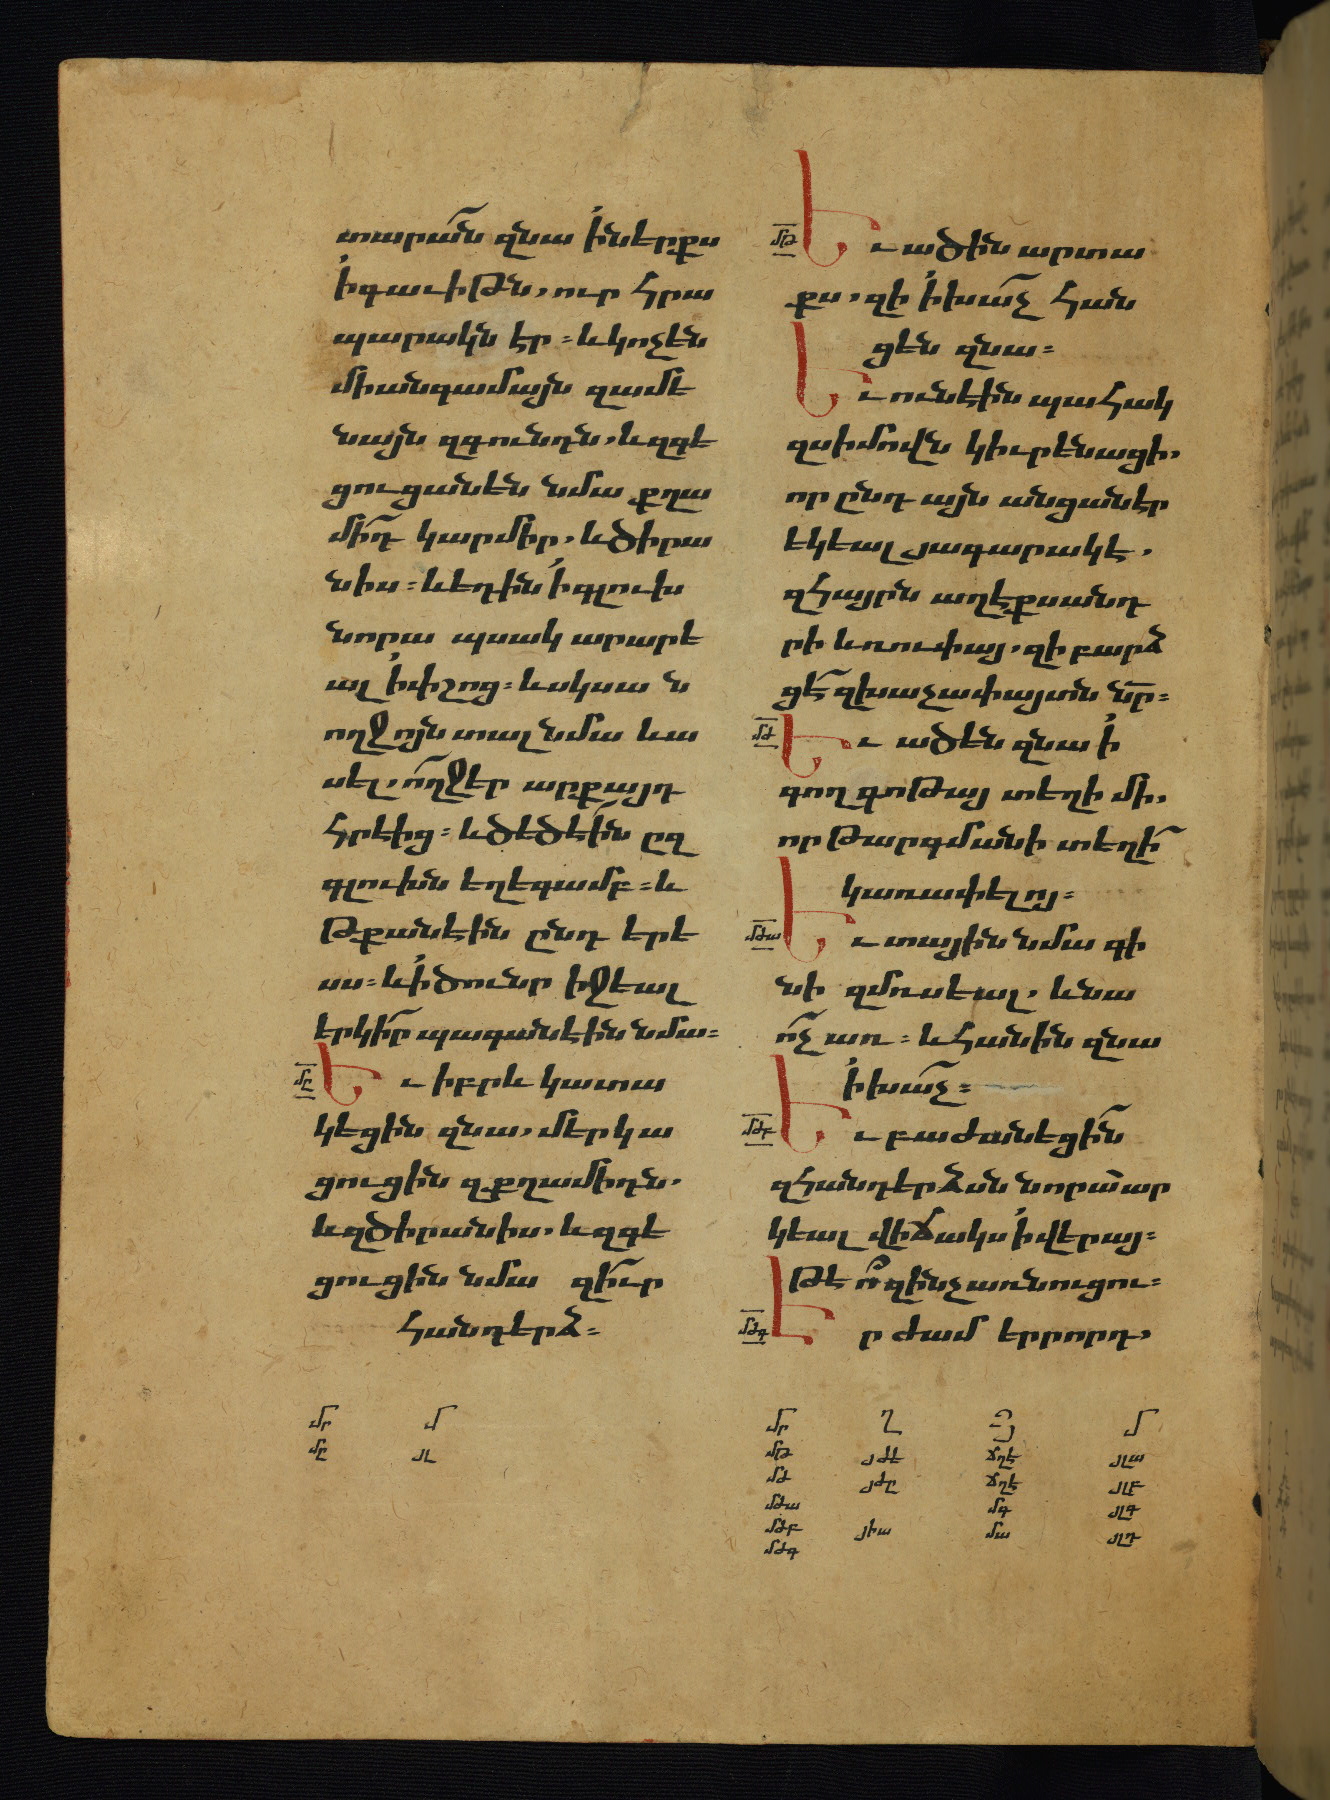 տարան զնա ի ներքս
ի գաւիթն, ուր հրա
պարակն էր։ և կոչեն
միանգամայն զամե
նայն զգունդն, և զգե
ցուցանեն նմա քղա
միդ կարմիր, և ծիրա
նիս։ և եդին ի գլուխ
նորա պսակ արարե
ալ ի փշոց։ և սկսա ն
ողջոյն տալ նմա և ա
սել, ո՛ղջ եր արքայդ
հրէից։ և ծեծէին ըզ
գլուխն եղեգամբ։ և
թքանէին ընդ երե
սս։ և ի ծունր իջեալ
երկիր պագանէին նմա։
մը Եւ իբրև կատա
կեցին զնա, մերկ ա
ցուցին զքղամիդն,
և զծիրանիս, և զգե
ցուցին նմա զիւր
հանդերձ։
մր մ
մը յլ
մթ Եւ ածին արտա
քս, զի ի խաչ հան
ցեն զնա։
Եւ ունէին պահակ
զսիմովն կիւրենացի,
որ ընդ այն անցանէր
եկեալ յագարակէ,
զհայրն աղէքսանդ
րի և ռուփայ, զի բարձ
ցէ զխաչափայտն նր։
մժ Եւ ածեն զնա ի
գողգոթայ տեղի մի,
որ թարգմանի տեղի
կառափելոյ։
մժա Եւ տային նմա գի
նի զմռսեալ, և նա
ոչ առ։ և հանին զնա
ի խաչ։
մժբ Եւ բաժանեցին
զհանդերձսն նորա ար
կեալ վիճակս ի վերայ։
թե ո՞ զինչ առնուցու։
մժգ Էր ժամ երրորդ,
մր ղ յ մ
մթ յժէ ճղէ յլա
մժ յժը ճղէ յլբ
մժա մգ յլգ
մժբ յիա մա յլդ
մժգ